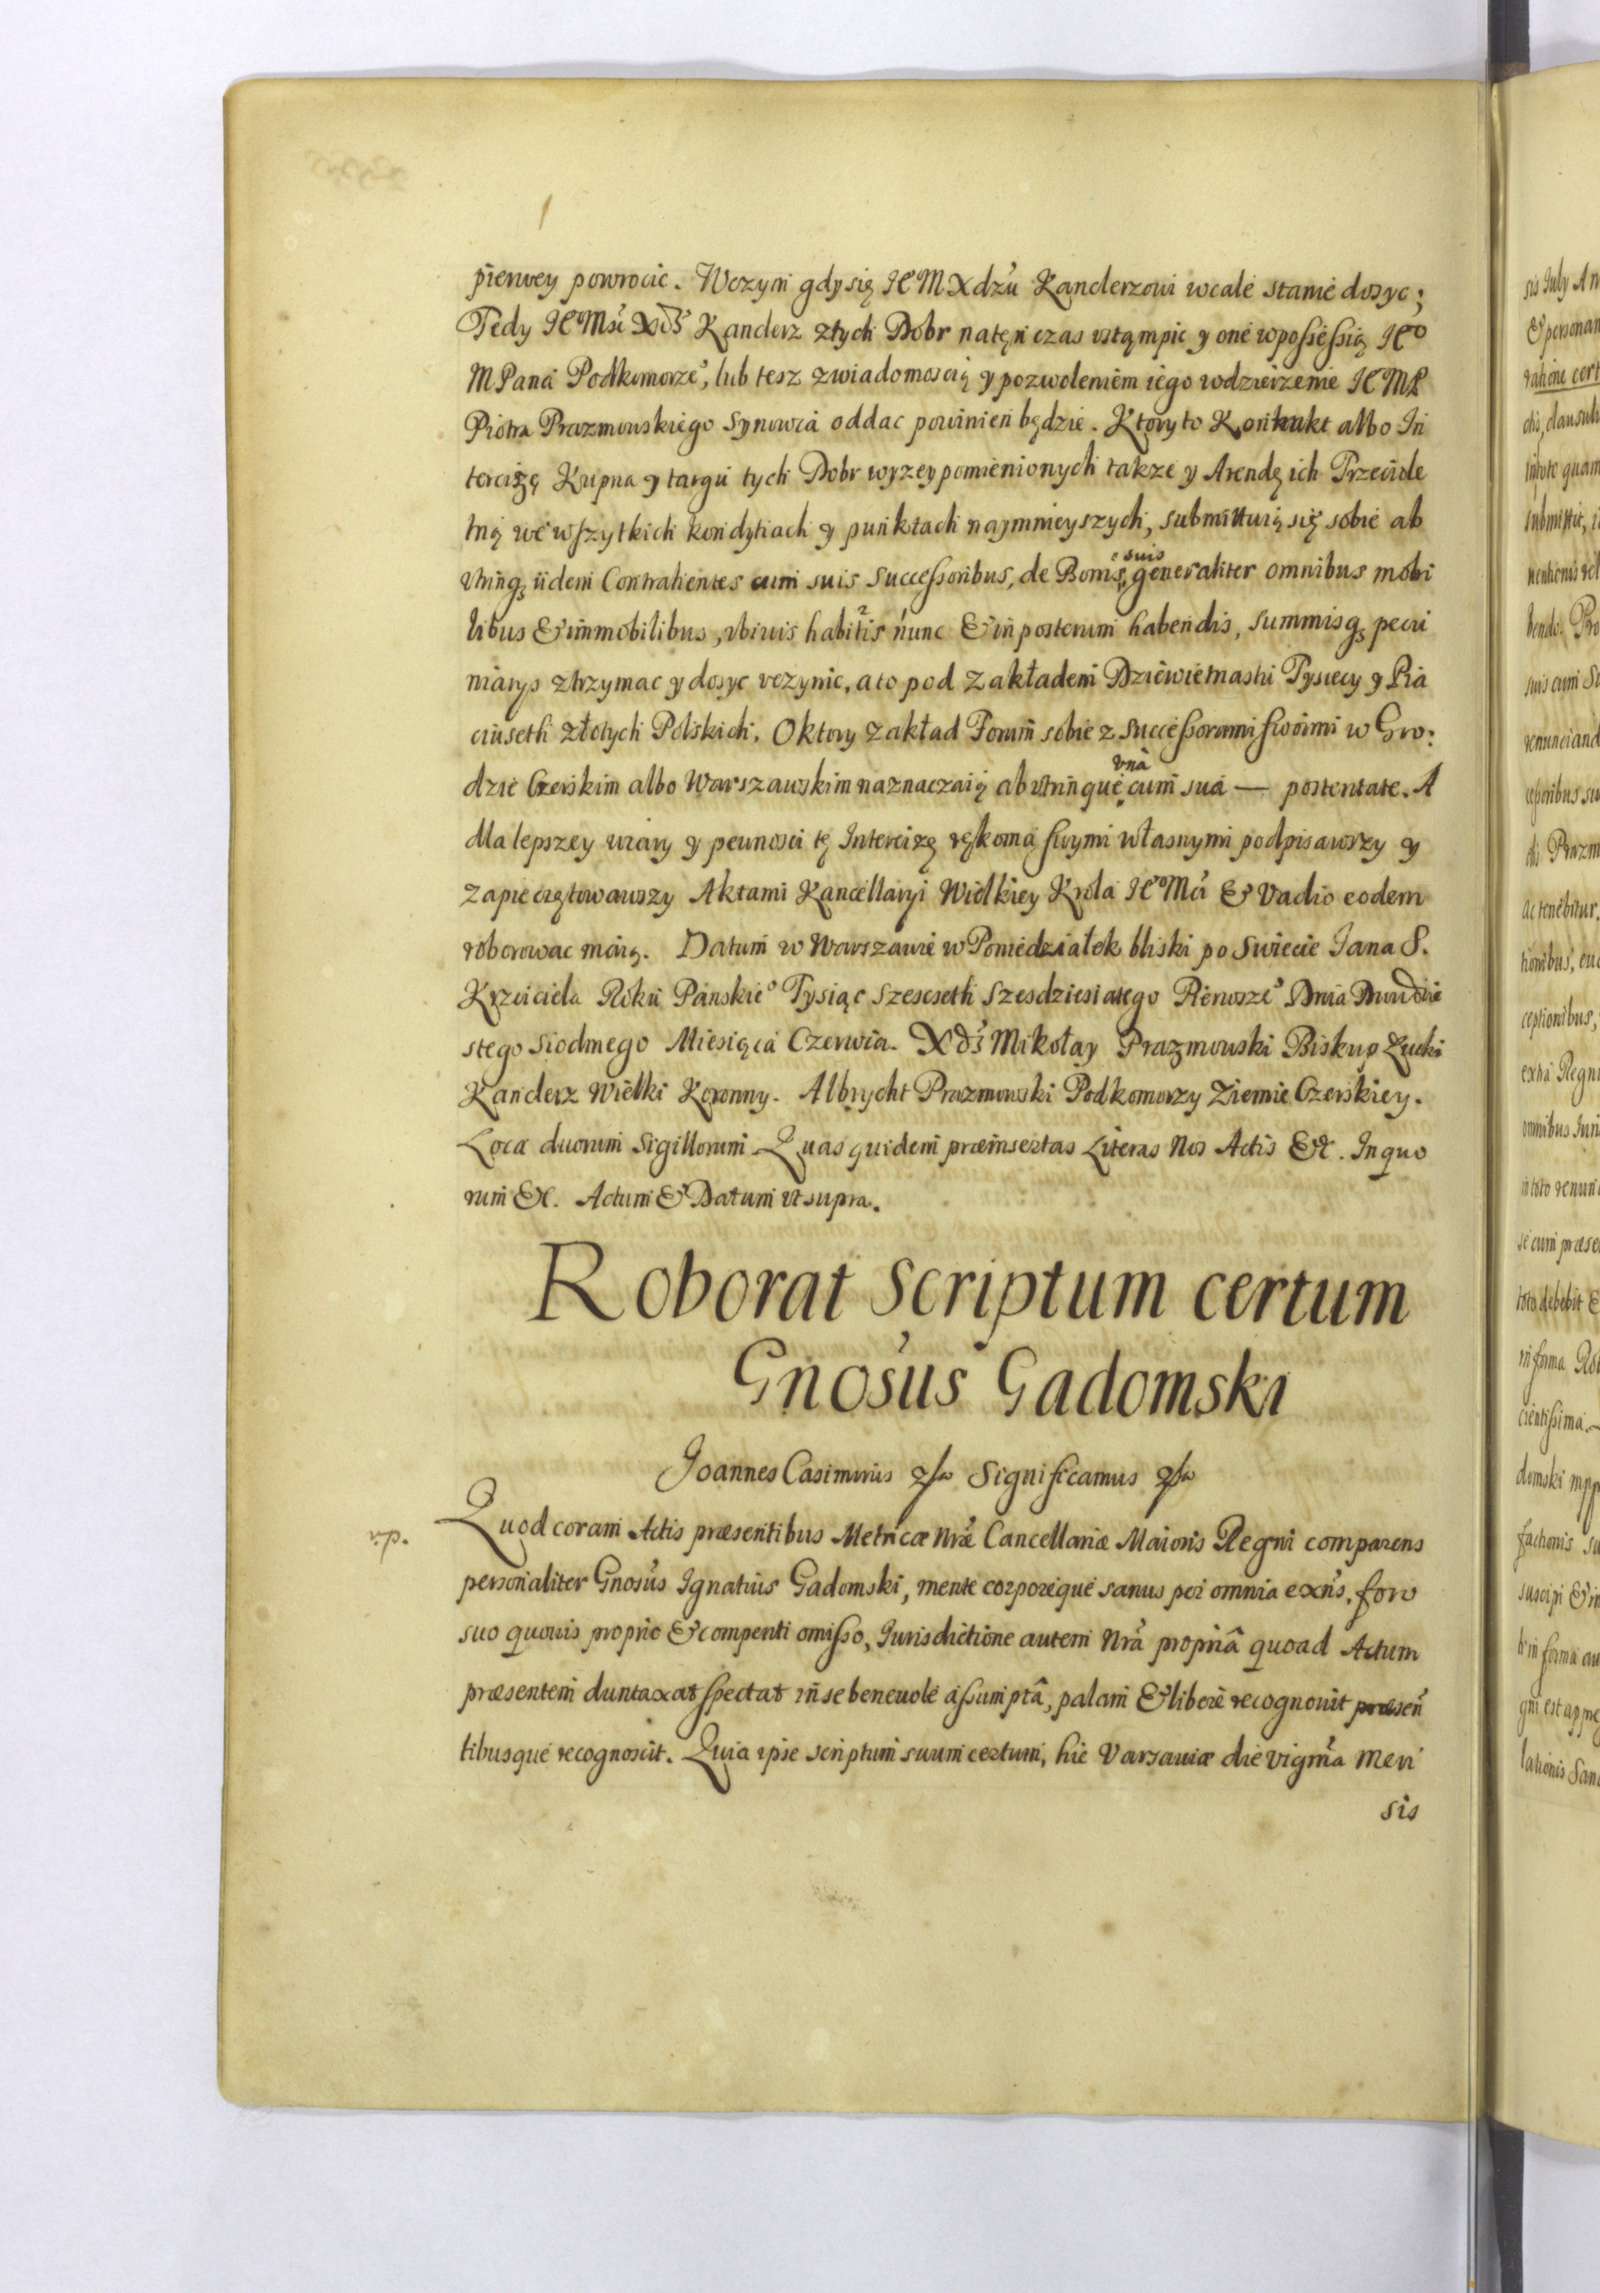 pierwey powrocic. Wczym gdy się IEM Xdzu Kanclerzowi wcale stanie dosyc;
Tedy IEoMśc Xdz Kanclerz z tych Dobr natęn czas vstąmpic y one wpossessią IEo
MPana Podkomorzeo, lub tesz zwiadomoscią y pozwoleniem iego wdzierzenie IEMP
Piotra Prazmowskiego Synowca oddac powinien będzie. Ktory to Kontrakt albo In
tercizę Kupna y targu tych Dobr wyzey pomienionych takze y Arendę ich Trzechle
tnią we wszytkich konditiach y punktach naymnieyszych, submittuią się sobie ab
vtrinq3 iidem Contrahentes cum suis Successoribus, de Bonis suis generaliter omnibus mobi
libus & immobilibus, vbivis habitis nunc & in posterum habendis, summisq3 pecu
niarys ztrzymac y dosyc vczynic, a to pod Zakładem Dziewietnastu Tysiecy y Pia
ciuseth złotych Polskich. O ktory Zakład Forum sobie z successorami swoimi w Gro:
dzie Czerskim albo Warszawskim naznaczaią ab vtrinque vna cum sua — posteritate. A
dla lepszey wiary y pewnosci tę Intercizę rękoma swymi własnymi podpisawszy y
zapieczętowawszy Aktami Kancellaryi Wielkiey Krola IEoMci & Vadio eodem
roborowac maią. Datum w Warszawie w Poniedziałek bliski po Swiecie Jana S.
Krzciciela Roku Panskieo Tysiąc szescseth szesdziesiatego Pierwszeo Dnia Dwudzie
stego siodmego Miesiąca Czerwca. Xdz Mikołay Prazmowski Biskup Łucki
Kanclerz Wielki Koronny. Albrycht Prazmowski Podkomorzy Ziemie Czerskiey.
Loca duorum Sigillorum. Quas quidem præinsertas Literas Nos Actis &c. In quo
rum &c. Actum & Datum vt supra.
Roborat Scriptum certum
Gnosus Gadomski
Joannes Casimirus &c Significamus &c
Quod coram Actis præsentibus Metricæ Nræ Cancellariæ Maioris Regni comparens
personaliter Gnosus Ignatius Gadomski, mente corporeque sanus per omnia exns, foro
suo quovis proprio & compenti omisso, Iurisdictione autem Nrâ propriâ quoad Actum
præsentem duntaxat spectat in se benevole assumptâ, palam & libere recognovit præsen
tibusque recognoscit. Quia ipse scriptum suum certum, hic Varsaviæ die vigma Men
sis